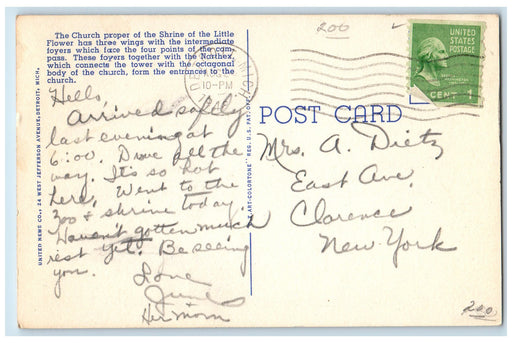 The Church proper of the Shrine of the Little
Flower has three wings with the intermediate
foyers which face the four points of the com-
pass. These foyers together with the Narthex,
which connects the tower with the octagonal
body of the church, form the entrances to the
church.
Hello,
Arrived safely
last evening at
6:00. Drove all the
way. It's so hot
here, Went to the
zoo & shrine today.
Haven't gotten much
rest yet. Be seeing
you.
Love
June
Her mom
UNITED NEWS CO., 24 WEST JEFFERSON AVENUE, DETROIT, MICH.
200
MICH
10-PM
UNITED
STATES
POSTAGE
CENT 1
POST CARD
Mrs. A. Dietz
East Ave.
Clarence
New York
200